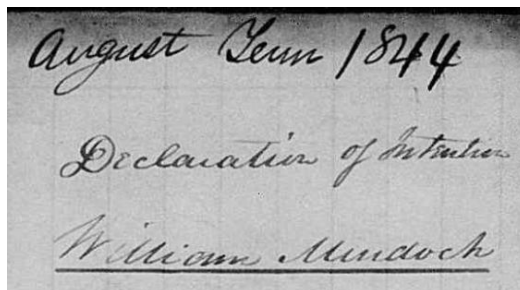 August Term 1844
Declaration of Intention
William Murdoch